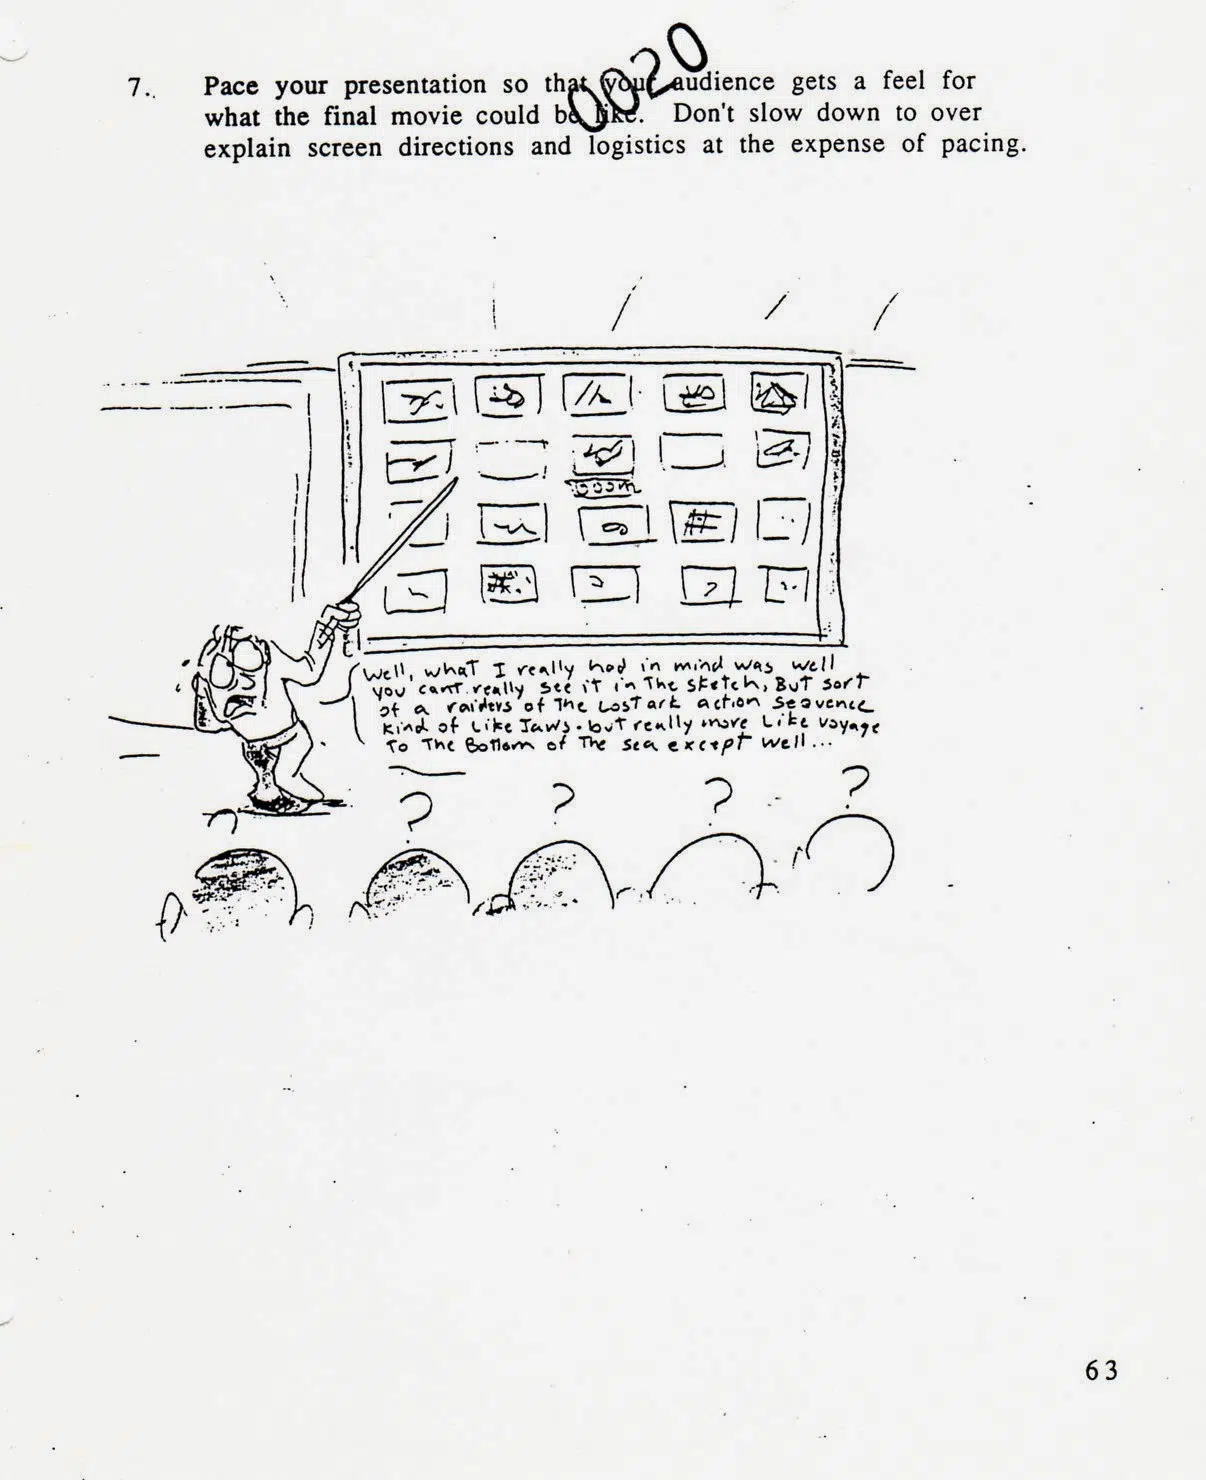 0020
7. Pace your presentation so that your audience gets a feel for
what the final movie could be like. Don't slow down to over
explain screen directions and logistics at the expense of pacing.
BOOM
Well, what I really had in mind was well
you cant really see it in The sketch, But sort
of a raiders of The Lost ark action Sequence
kind of Like Jaws. but really more Like voyage
To The Bottom of The sea except well...
? ? ? ? ?
63